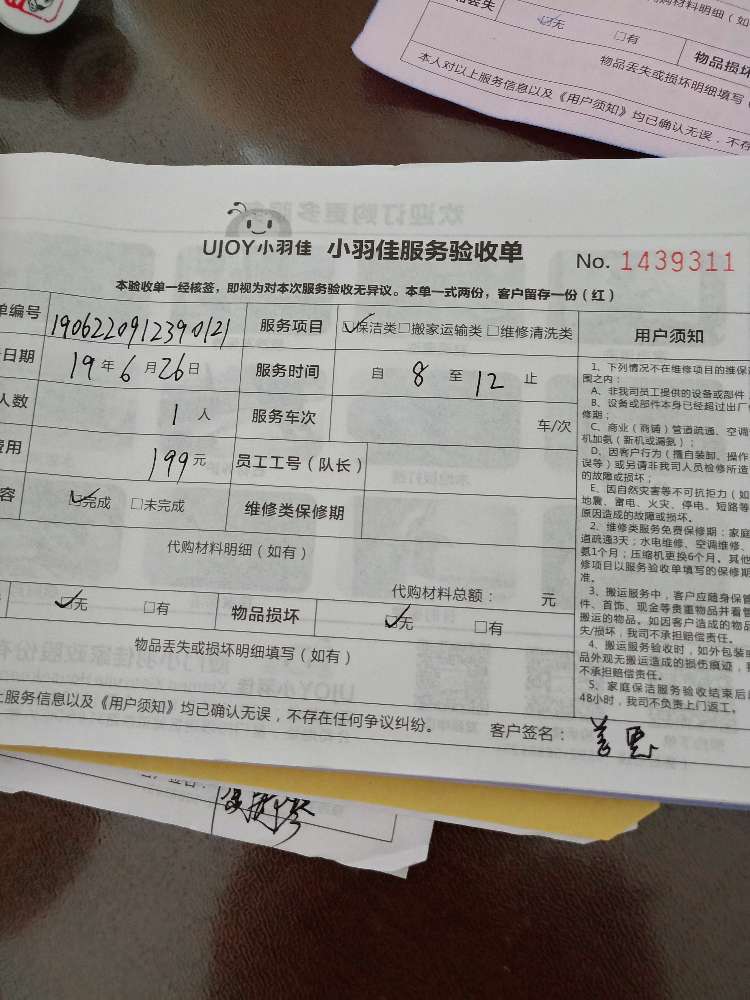 物品丢失
材料明细（如
☑无
□有
物品损坏
物品丢失或损坏明细填写（
本人对以上服务信息以及《用户须知》均已确认无误，不存在
欢迎订购更多服务
UJOY小羽佳 小羽佳服务验收单
No. 1439311
本验收单一经核签，即视为对本次服务验收无异议。本单一式两份，客户留存一份（红）
单编号 1906220912390121 服务项目 ☑保洁类□搬家运输类 □维修清洗类 用户须知
日期 19年6月26日 服务时间 自 8 至 12 止
人数 1人 服务车次 车/次
费用 199元 员工工号（队长）
容 ☑完成 □未完成 维修类保修期
代购材料明细（如有）
代购材料总额： 元
☑无 □有 物品损坏 ☑无 □有
物品丢失或损坏明细填写（如有）
上服务信息以及《用户须知》均已确认无误，不存在任何争议纠纷。 客户签名：
1、下列情况不在维修项目的维保
围之内：
A、非我司员工提供的设备或部件
B、设备或部件本身已经超过出厂
修期；
C、商业（商铺）管道疏通、空调
机加氨（新机或漏氨）；
D、因客户行为（擅自装卸、操作
误等）或另请非我司人员检修所造
的故障或损坏；
E、因自然灾害等不可抗拒力（如
地震、雷电、火灾、停电、短路等
原因造成的故障或损坏。
2、维修类服务免费保修期：家庭
道疏通3天；水电维修、空调维修、
氨1个月；压缩机更换6个月。其他
修项目以服务验收单填写的保修期
准。
3、搬运服务中，客户应随身保管
件、首饰、现金等贵重物品并看管
搬运的物品。如因客户造成的物品
失/损坏，我司不承担赔偿责任。
4、搬运服务验收时，如外包装
品外观无搬运造成的损伤痕迹，
不承担赔偿责任。
5、家庭保洁服务验收结束后
48小时，我司不负责上门返工。